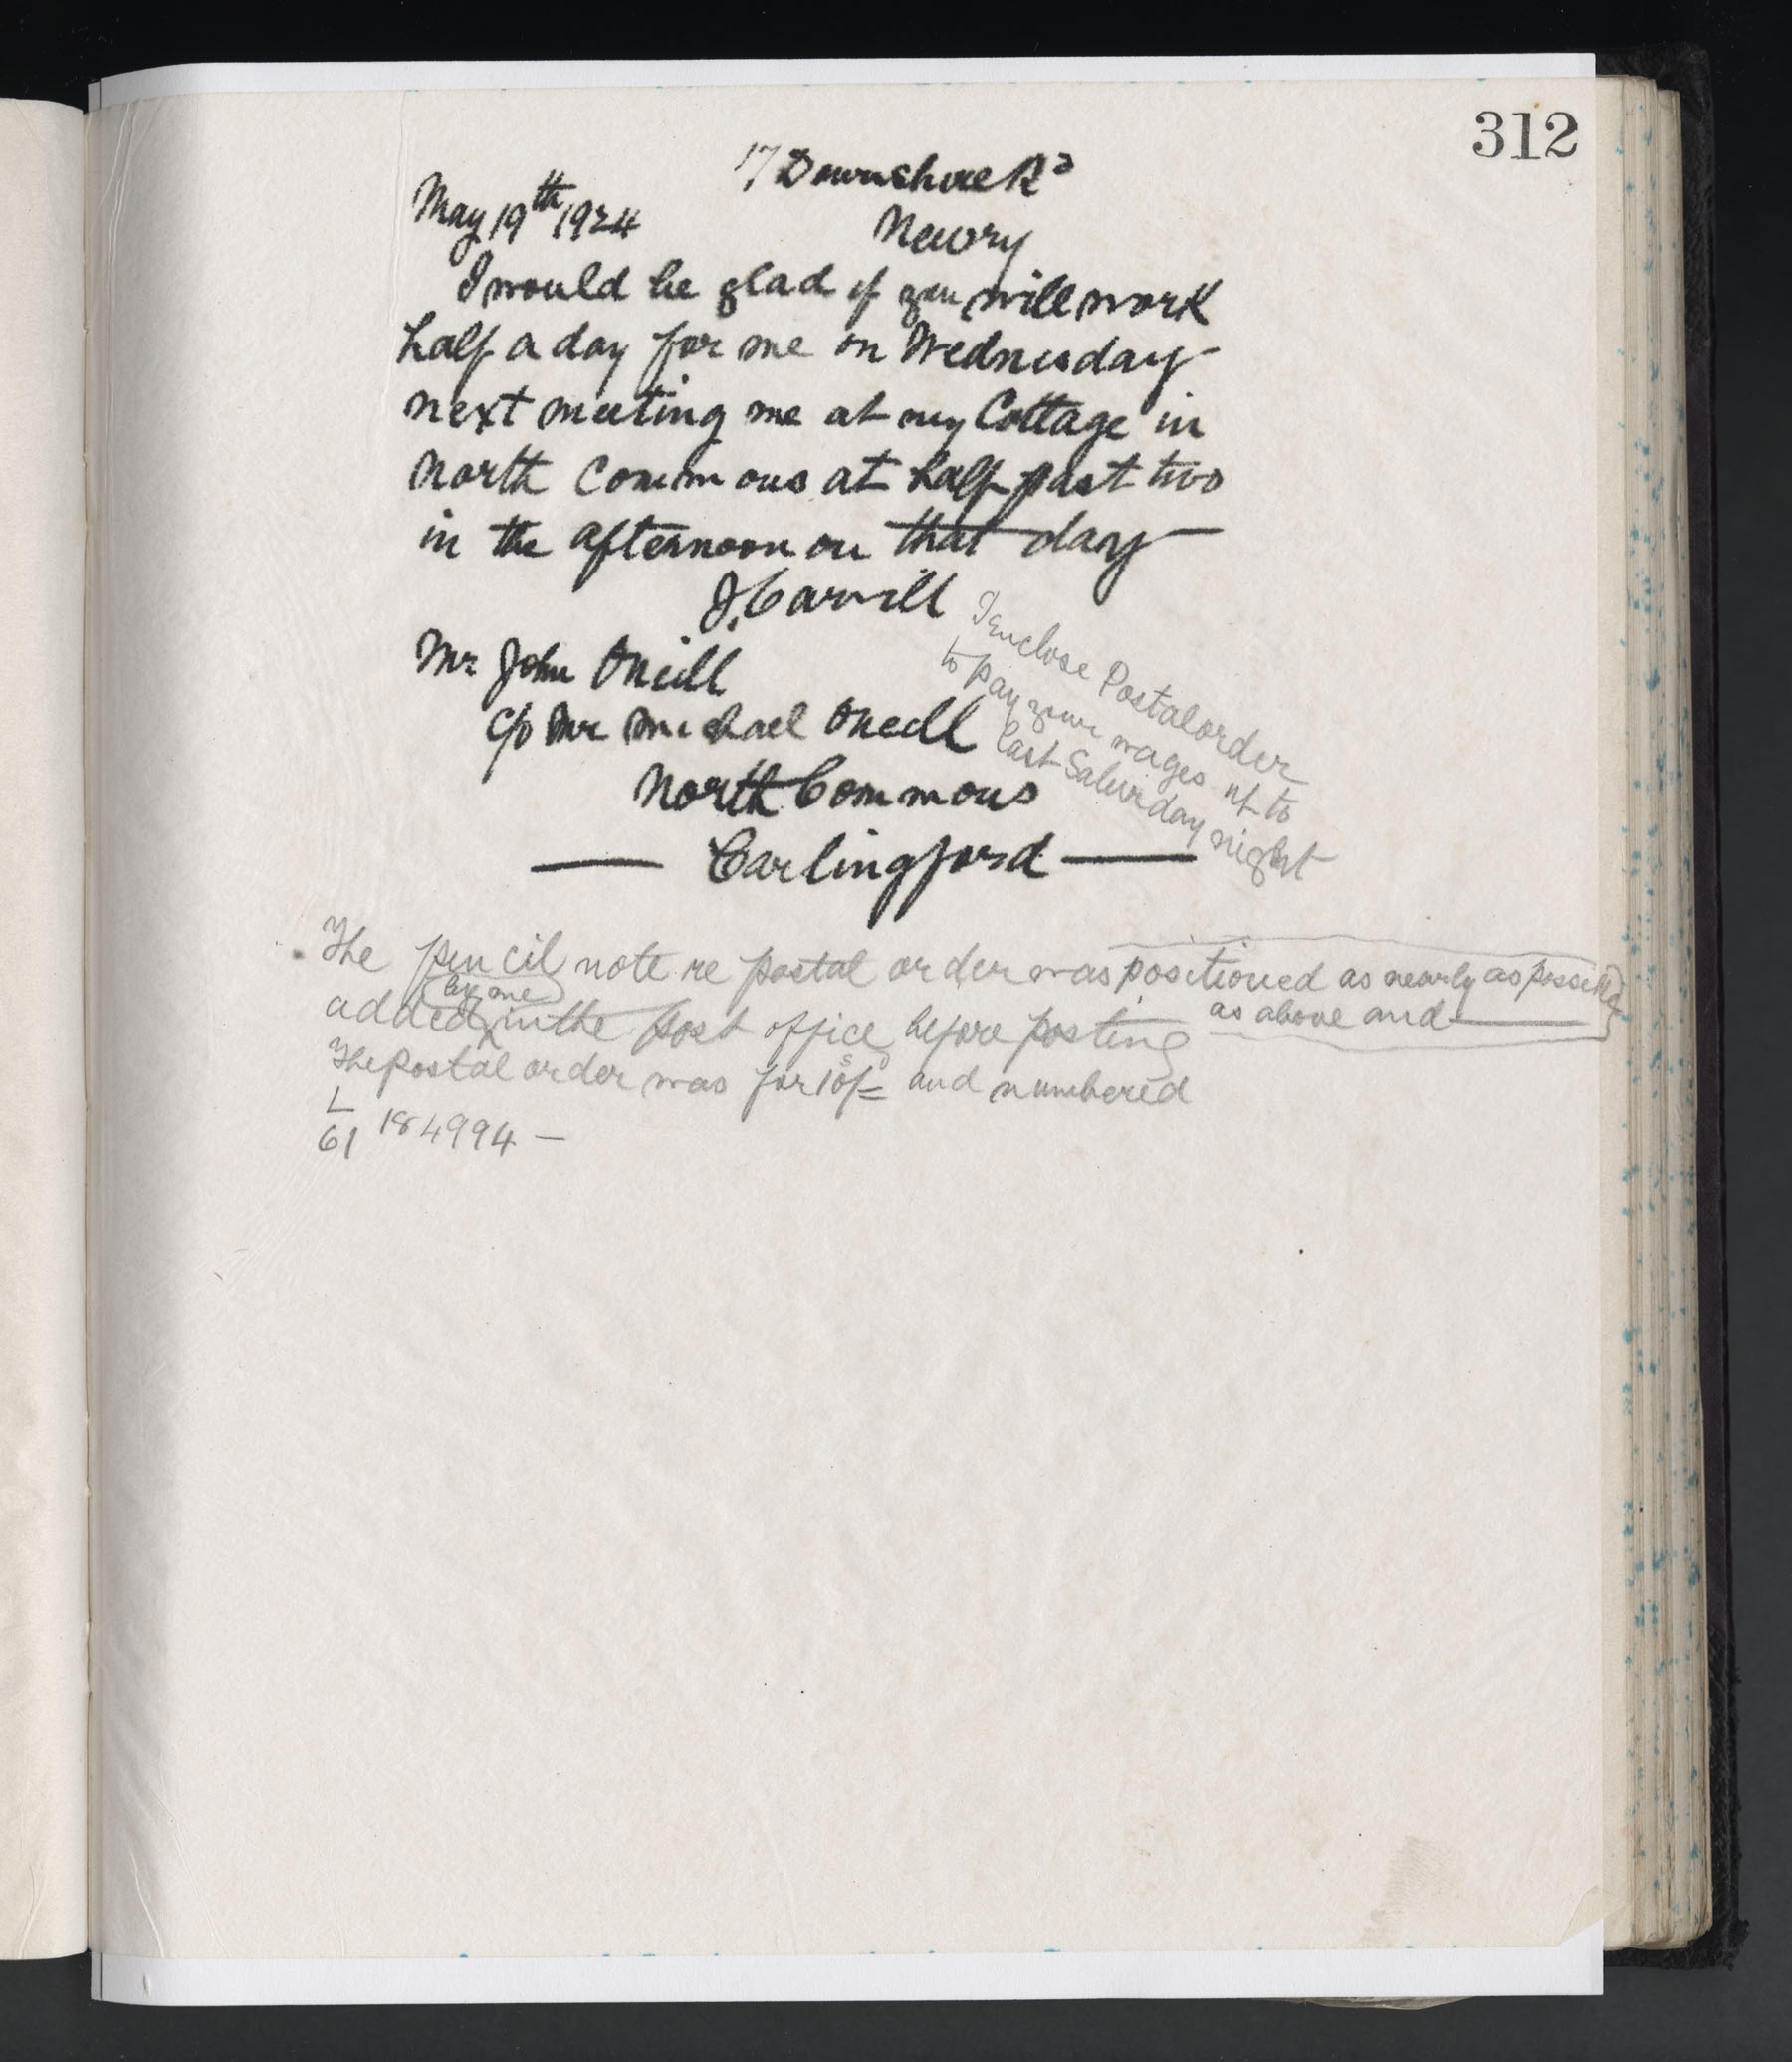 312
17 Downshire Rd
May 19th 1924
Newry
I would be glad if you will work
half a day for me on Wednesday
next meeting me at my Cottage in
North Commons at half past two
in the afternoon on that day
J. Carvill
I enclose Postal order
to pay your wages up to
last Saturday night
Mr John ONeill
c/o Mr Michael ONeill
North Commons
Carlingford
The pencil note re postal order was positioned as nearly as possible
as above and
added by me in the post office before posting
The Postal order was for 10/= and numbered
L
61 184994 —